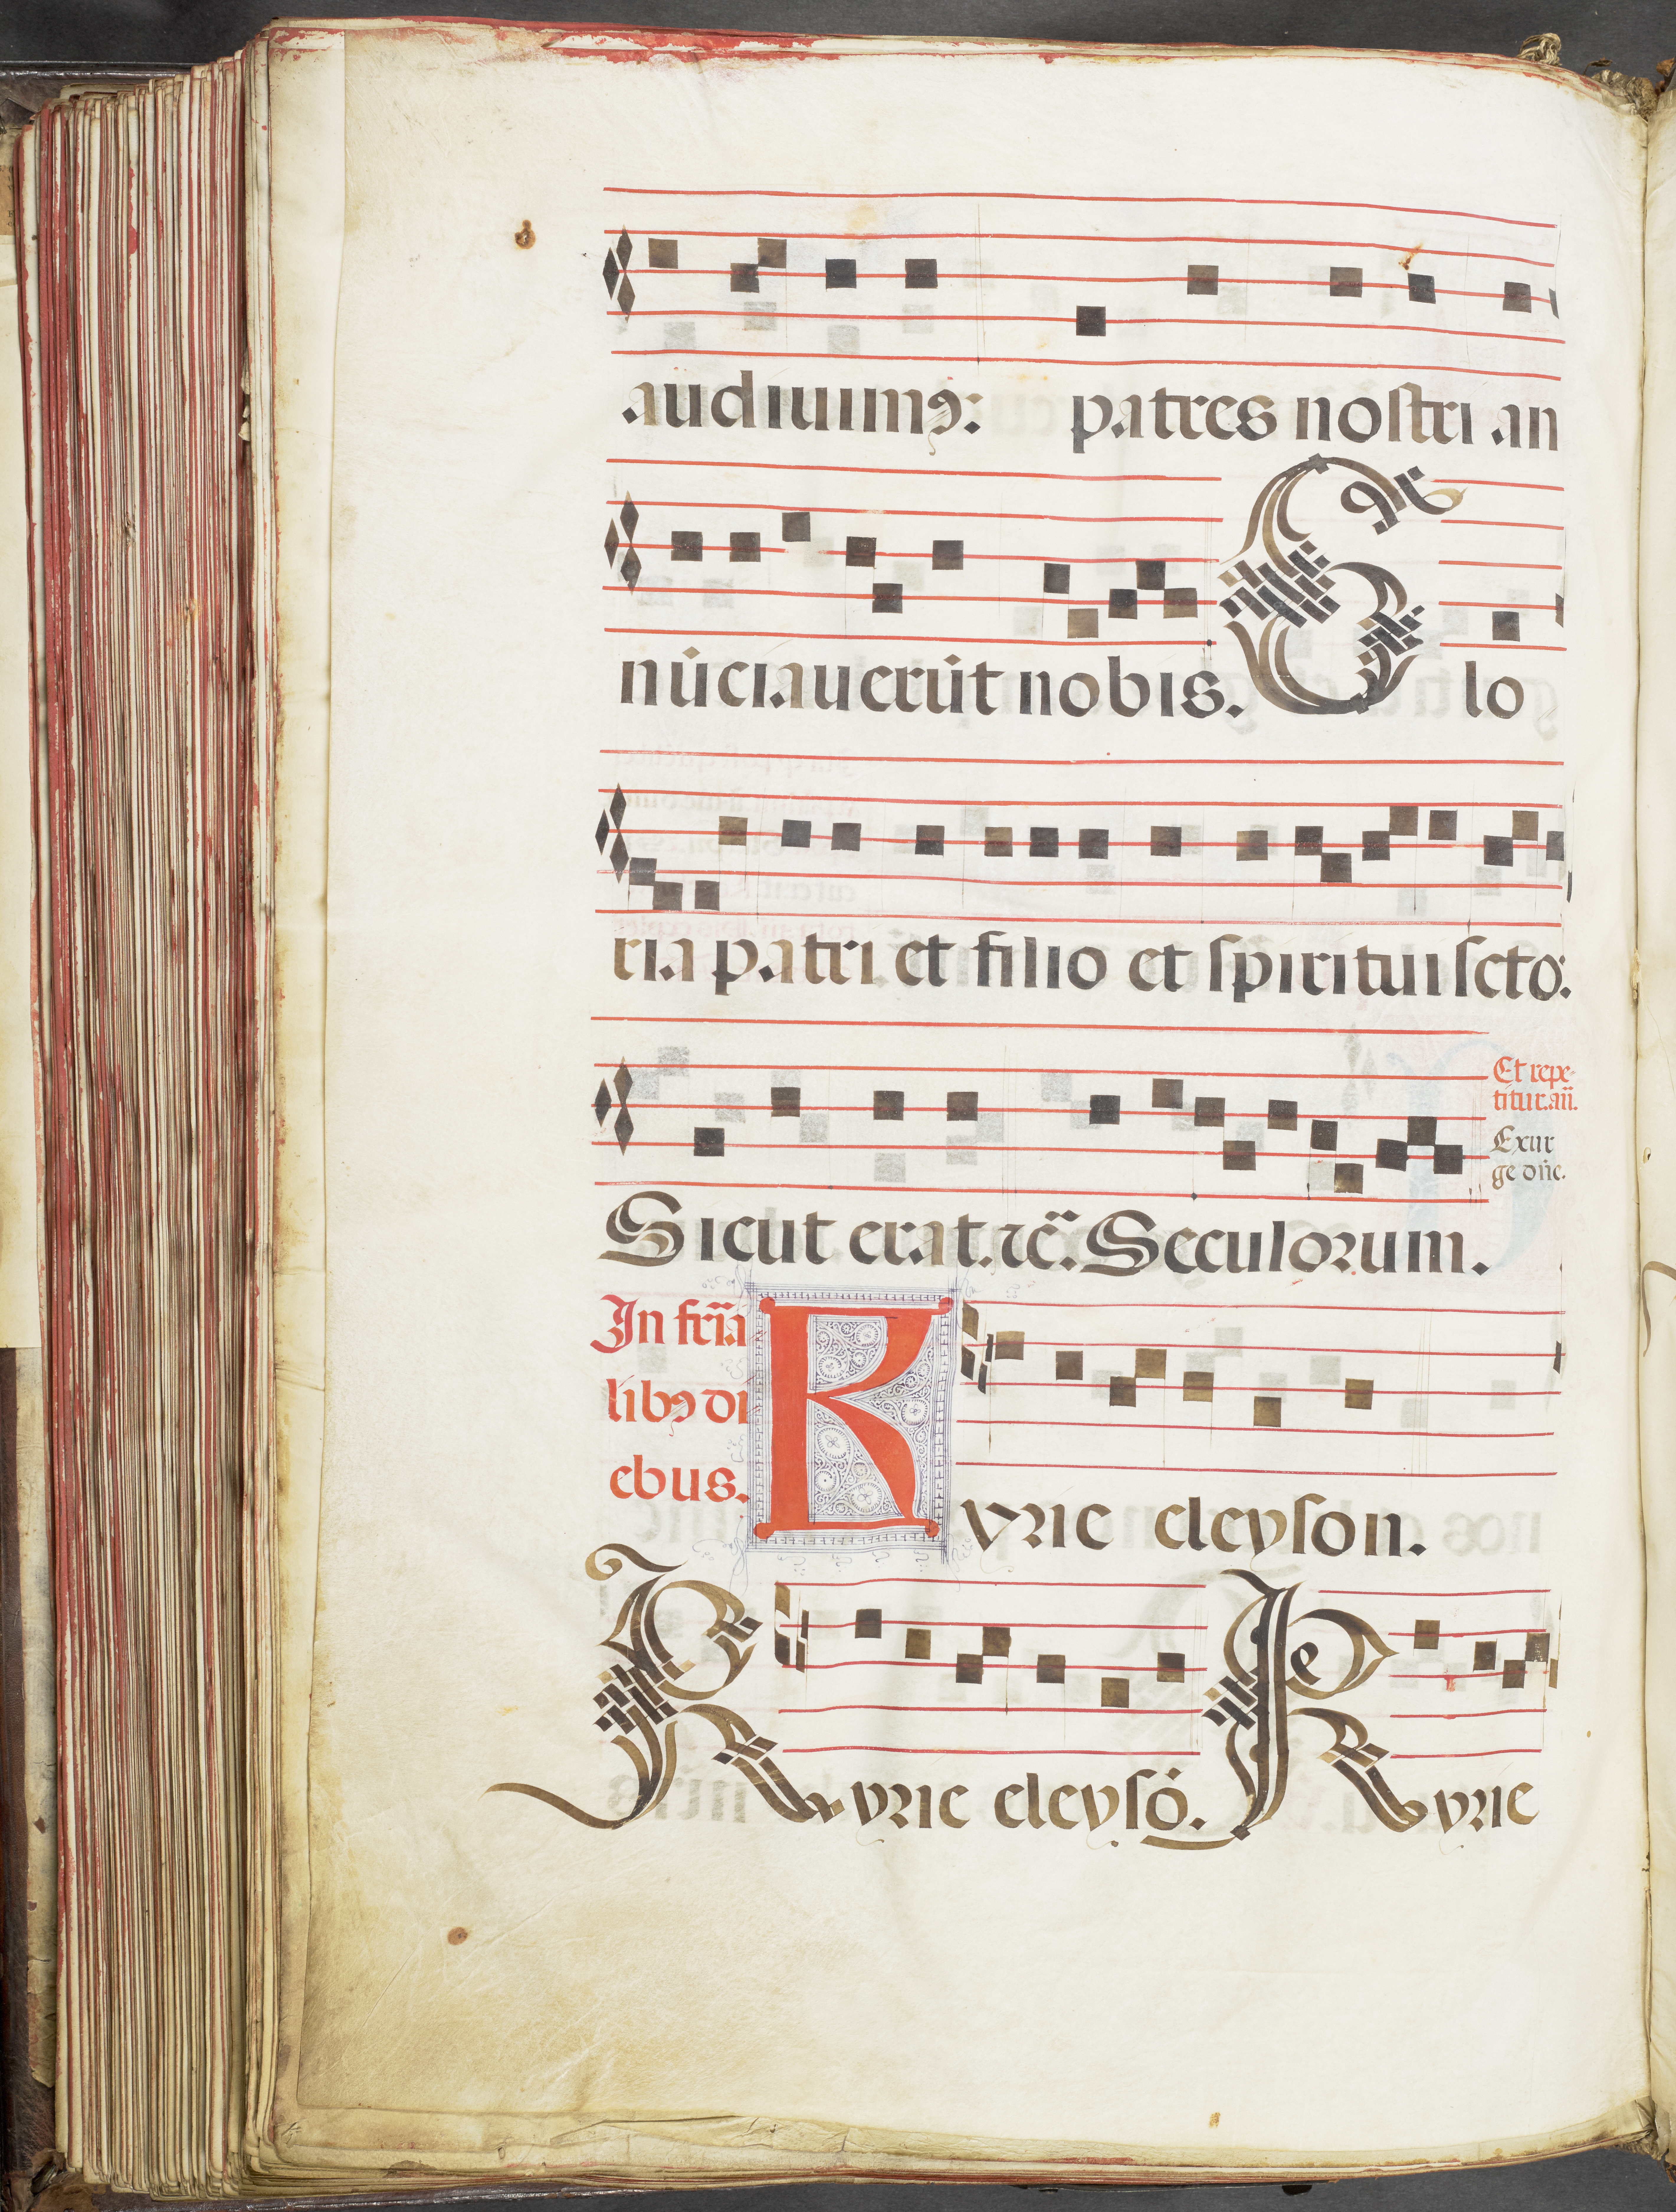 audiuimꝰ: patres nostri an
nūciauerūt nobis. Glo
ria patri et filio et spiritui scto:
Et repe-
titur. añ.
Exur
ge dñe.
Sicut erat. ⁊c̃. Seculorum.
In fer̃ia
libꝰ di
ebus.
Kyrie eleyson.
Kyrie eleysō. Kyrie